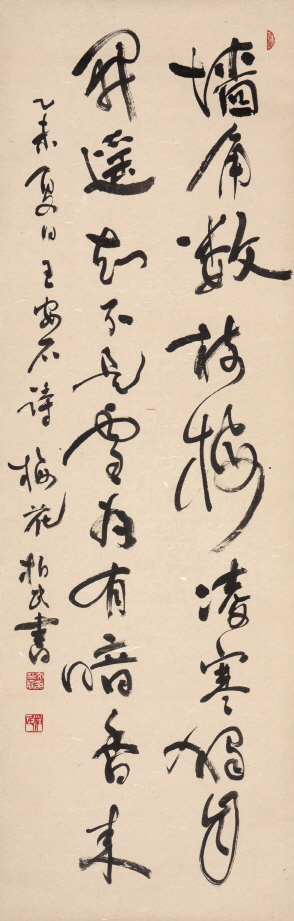 墙角数枝梅凌寒独自
开遥知不是雪为有暗香来
乙未夏日王安石诗梅花柏民書